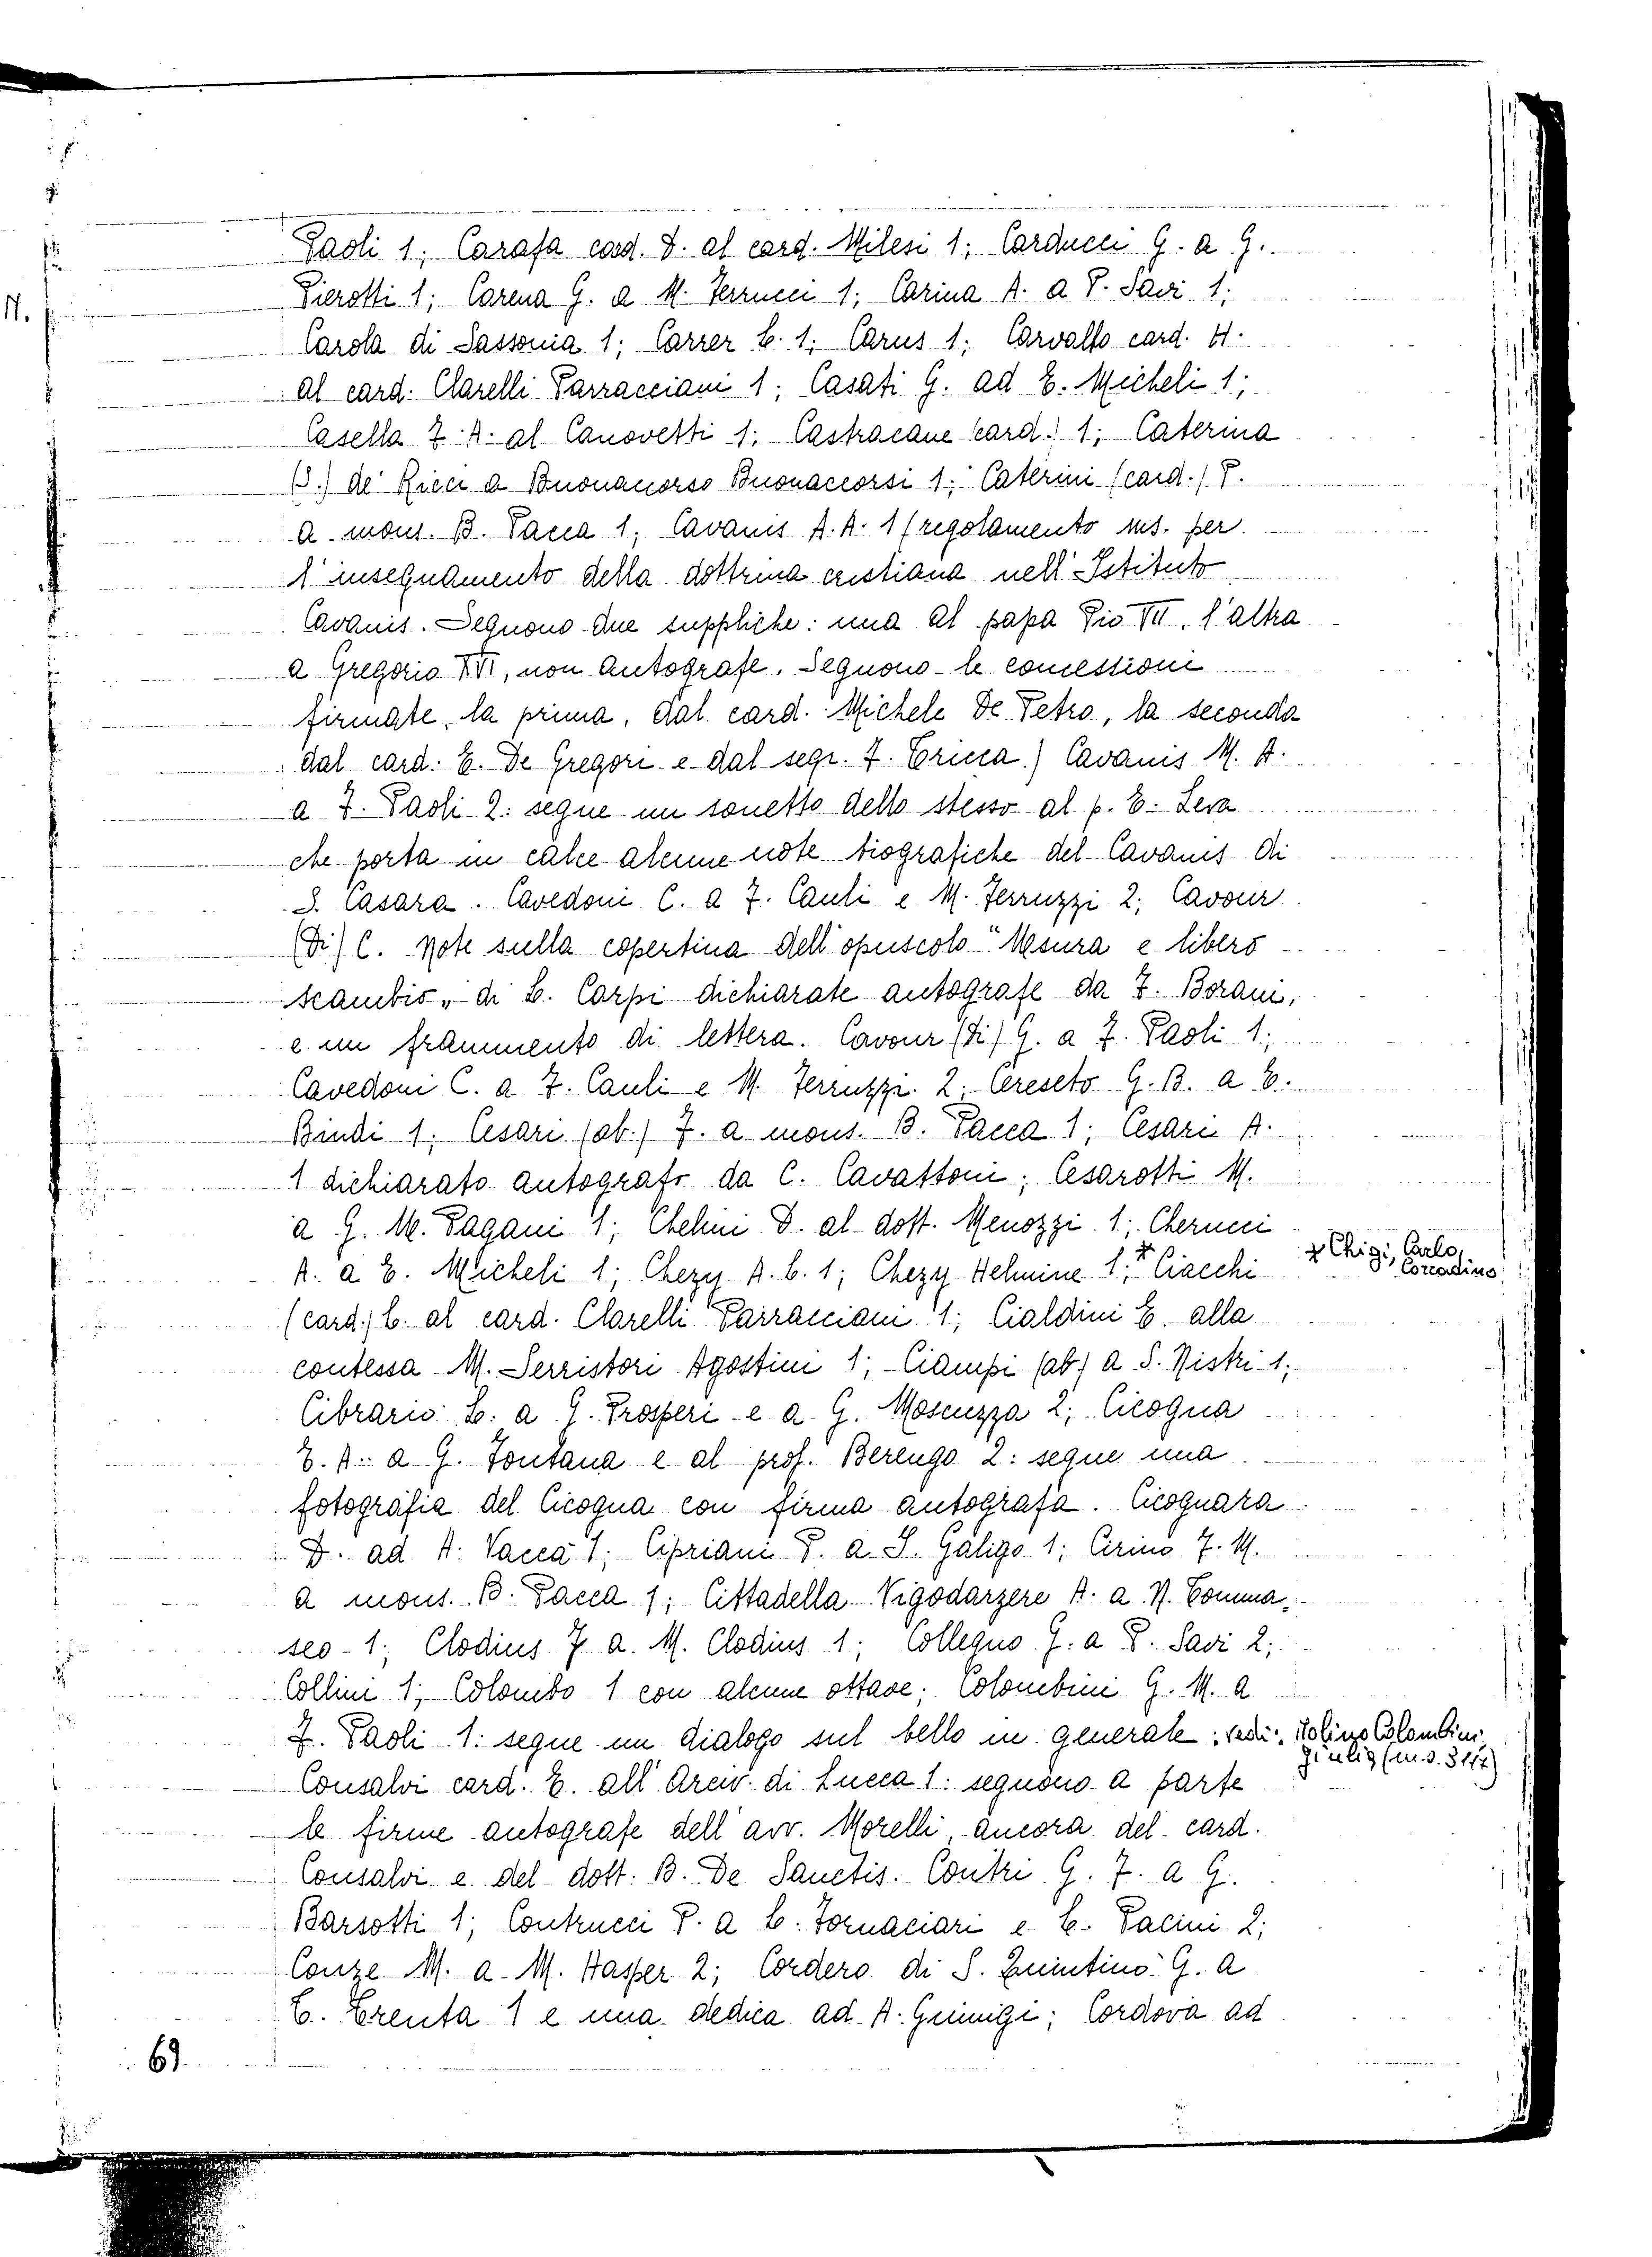 Paoli 1; Carafa card. D. al card. Milesi 1; Carducci G. a G.
Pierotti 1; Carena G. a M. Ferrucci 1; Carina A. a P. Savi 1;
Carola di Sassonia 1; Carrer L. 1; Carus 1; Carvalho card. H.
al card. Clarelli Parracciani 1; Casati G. ad E. Micheli 1;
Casella F. A. al Canovetti 1; Castracane (card.) 1; Caterina
(S.) de' Ricci a Buonaccorso Buonaccorsi 1; Caterini (card.) P.
a mons. B. Pacca 1; Cavanis A. A. 1 (regolamento ms. per
l'insegnamento della dottrina cristiana nell'Istituto
Cavanis. Seguono due suppliche: una al papa Pio VII, l'altra
a Gregorio XVI, non autografe. Seguono le concessioni
firmate, la prima, dal card. Michele De Petro, la seconda
dal card. E. De Gregori e dal segr. F. Tricca.) Cavanis M. A.
a F. Paoli 2: segue un sonetto dello stesso al p. E. Leva
che porta in calce alcune note biografiche del Cavanis di
S. Casara. Cavedoni C. a F. Cauli e M. Ferruzzi 2; Cavour
(Di) C. Note sulla copertina dell'opuscolo "Usura e libero
scambio" di L. Carpi dichiarate autografe da F. Borani,
e un frammento di lettera. Cavour (Di) G. a F. Paoli 1;
Cavedoni C. a F. Cauli e M. Ferruzzi 2; Cereseto G. B. a E.
Bindi 1; Cesari (ab.) F. a mons. B. Pacca 1; Cesari A.
1 dichiarato autografo da C. Cavattoni; Cesarotti M.
a G. M. Pagani 1; Chelini D. al dott. Menozzi 1; Cherucci
A. a E. Micheli 1; Chezy A. L. 1; Chezy Helmine 1;* Ciacchi
* Chigi, Carlo,
Corradino
(card.) L. al card. Clarelli Parracciani 1; Cialdini E. alla
contessa M. Serristori Agostini 1; Ciampi (ab.) a S. Nistri 1;
Cibrario L. a G. Prosperi e a G. Moscuzza 2; Cicogna
E. A. a G. Fontana e al prof. Berengo 2: segue una
fotografia del Cicogna con firma autografa. Cicognara
L. ad A. Vacca 1; Cipriani P. a S. Galigo 1; Cirino F. M.
a mons. B. Pacca 1; Cittadella Vigodarzere A. a N. Tomma=
seo 1; Clodius F. a M. Clodius 1; Collegno G. a P. Savi 2;
Collini 1; Colombo 1 con alcune ottave; Colombini G. M. a
F. Paoli 1: segue un dialogo sul bello in generale; vedi: Molino Colombini,
Giulia (m.s. 3117)
Consalvi card. E. all'Arciv. di Lucca 1: seguono a parte
le firme autografe dell'avv. Morelli, ancora del card.
Consalvi e del dott. B. De Sanctis. Contri G. F. a G.
Barsotti 1; Contrucci P. a L. Fornaciari e L. Pacini 2;
Conze M. a M. Hasper 2; Cordero di S. Quintino G. a
T. Trenta 1 e una dedica ad A. Guinigi; Cordova ad
69